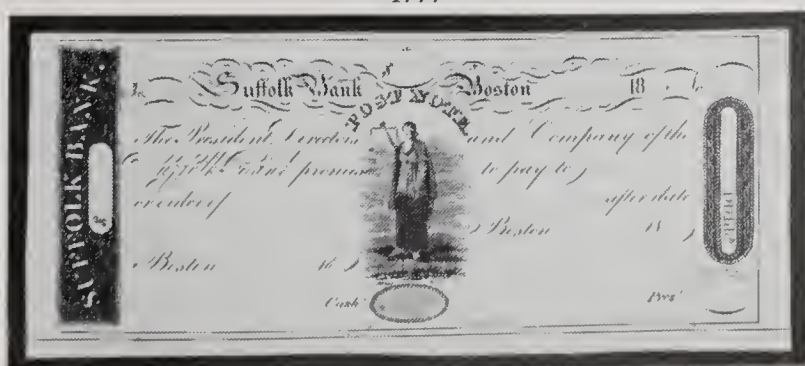 SUFFOLK BANK.
Suffolk Bank of Boston 18
POST NOTE
The President, Directors and Company of the
Suffolk Bank promise to pay to
or order of after date
Boston 18
Boston 18
Cash.r Pres.t